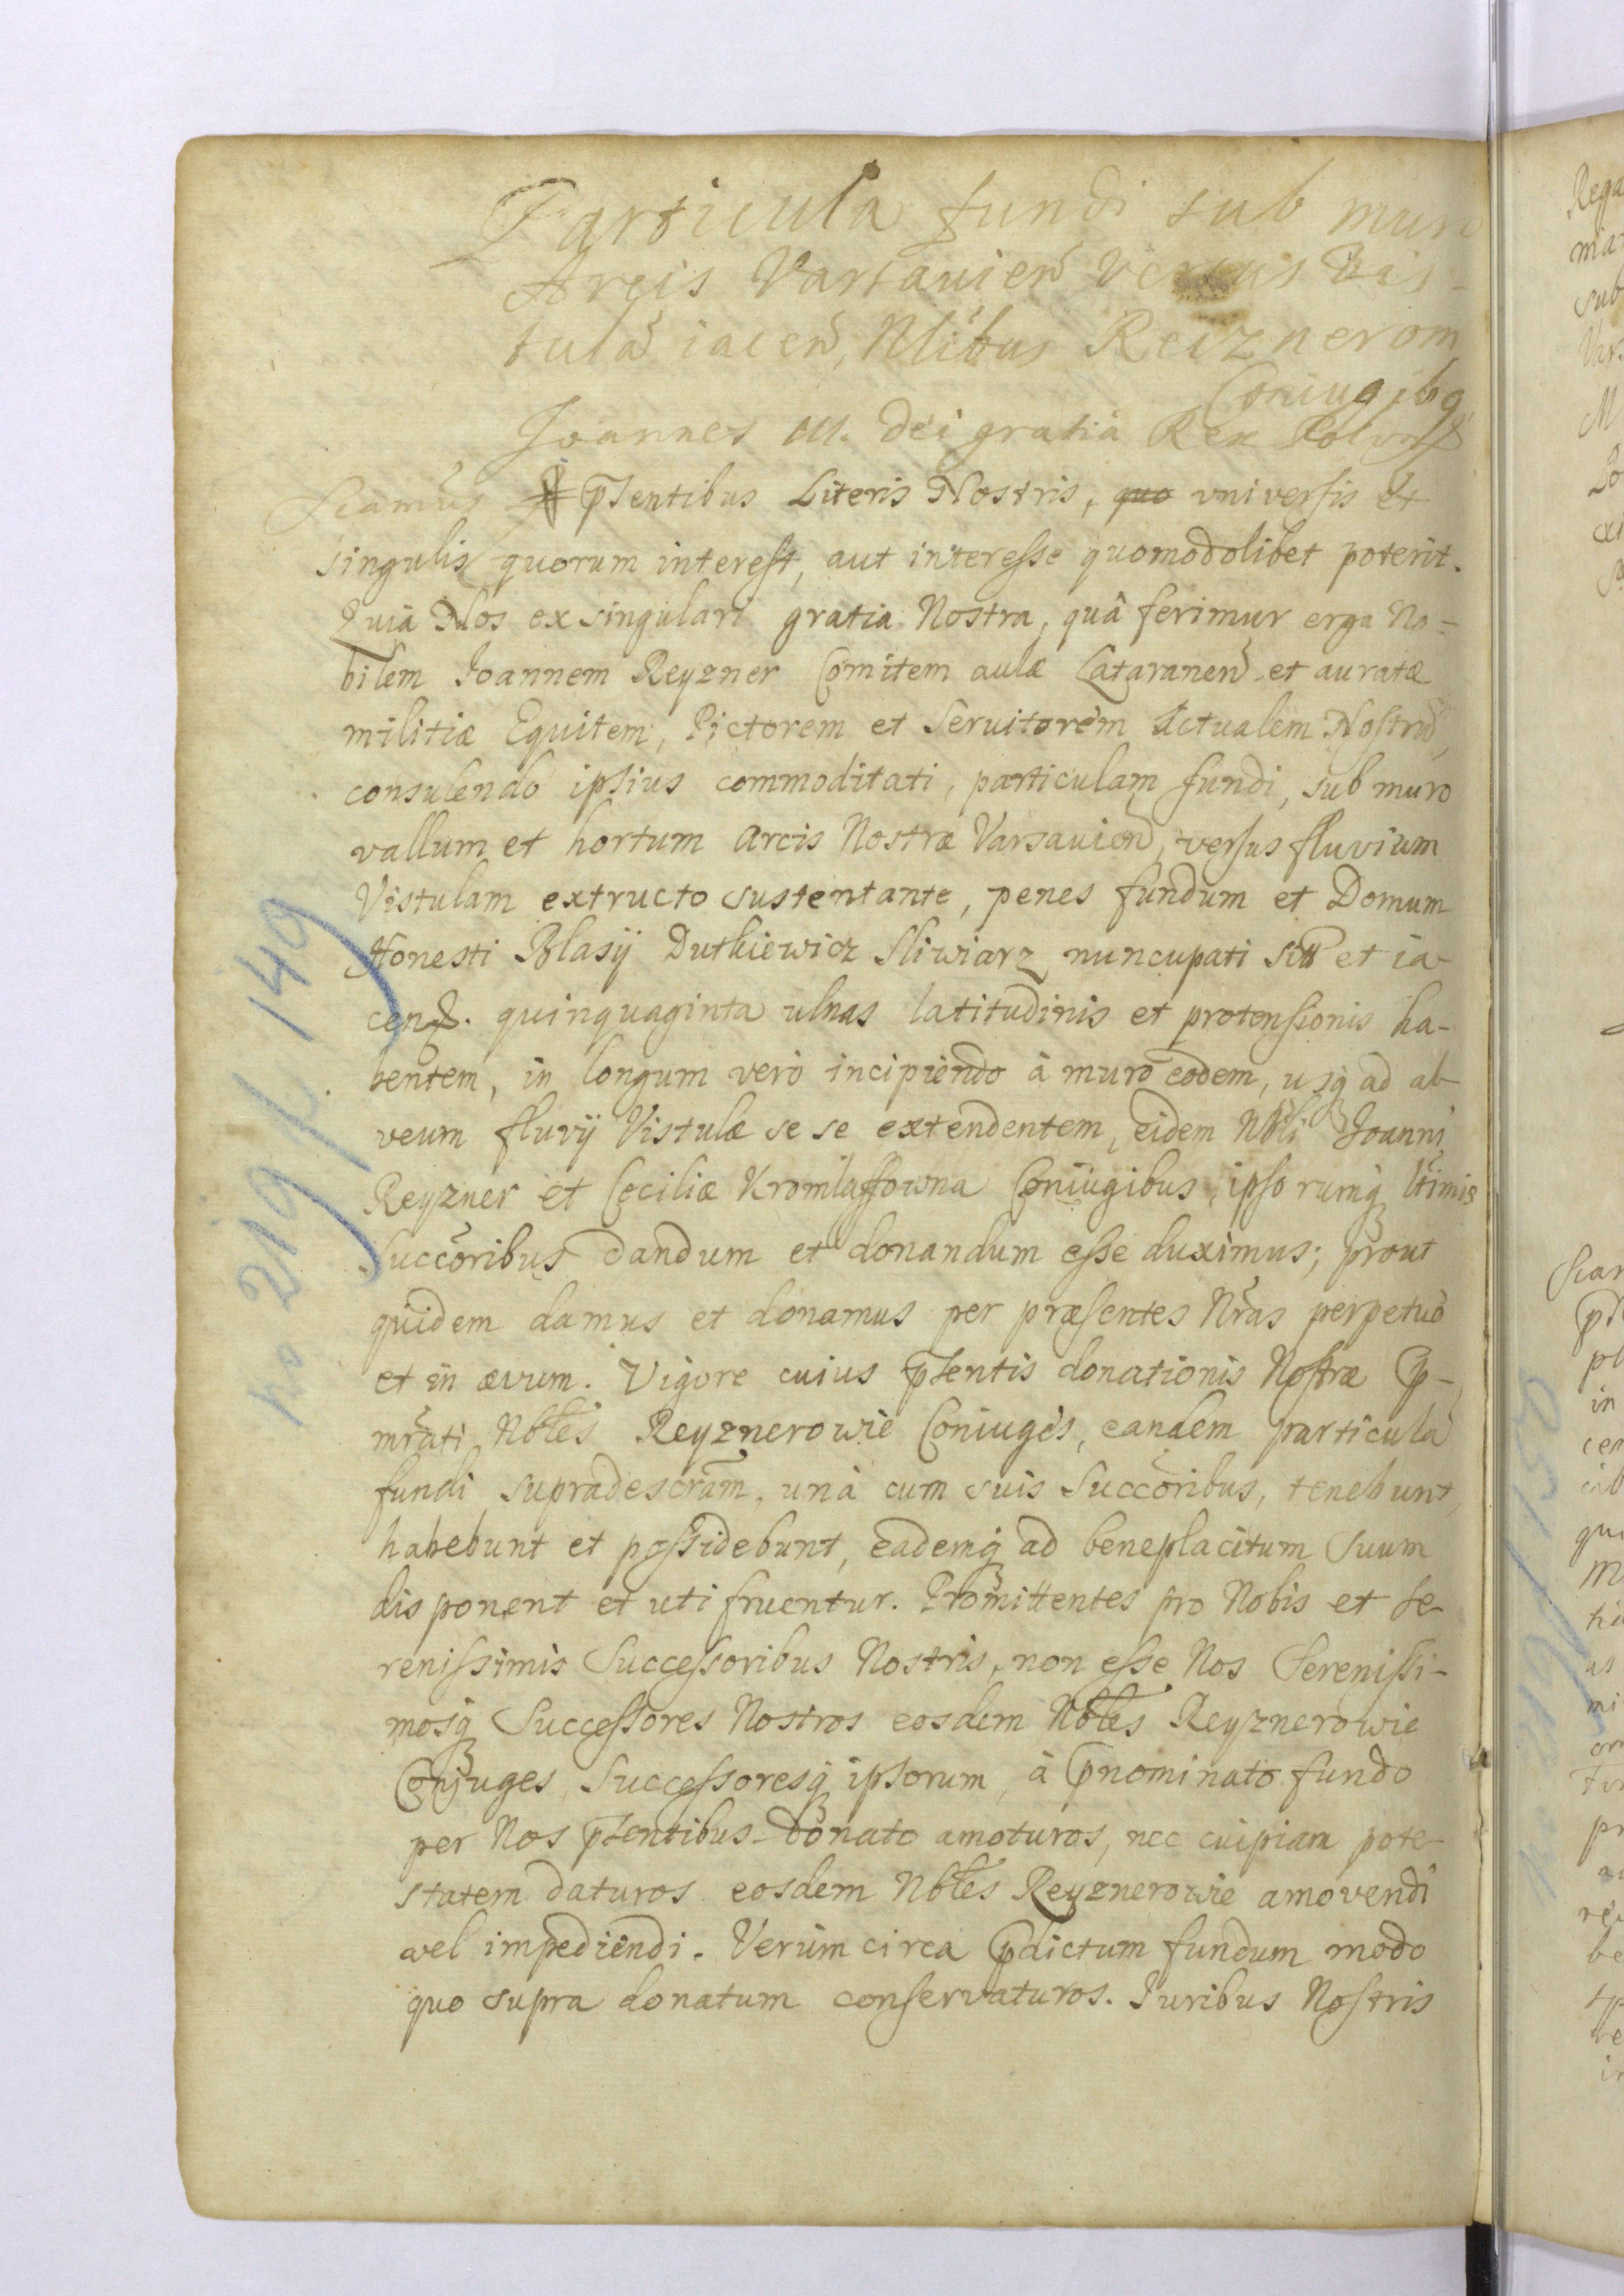 Particula fundi sub muro
Arcis Varsavien̄ versus Vis-
tulā iacen̄, Nlibus Reiznerom
Coniugibq
Joannes III. Dei gratia Rex Polon
Scamus pr̄sentibus Literis Nostris, quo universis et
singulis quorum interest, aut interesse quomodolibet poterit.
Quia Nos ex singulari gratia Nostra, quâ ferimur erga No=
bilem Joannem Reyzner Comitem aulæ Lataranen̄ et auratæ
militiæ Equitem, Pictorem et Servitorem Actualem Nostrū,
consulendo ipsius commoditati, particulam fundi, sub muro
vallum et hortum Arcis Nostræ Varsavien̄, versus fluvium
Vistulam extructo sustentante, penes fundum et Domum
Honesti Blasÿ Dutkiewicz Sliwiarz nuncupati et ia-
cen. quinquaginta ulnas latitudinis et protensionis ha-
bentem, in longum verò incipiendo à muro eodem, usq ad al-
veum fluvÿ Vistulæ se se extendentem, eidem Nbli Joanni
Reyzner et Ceciliæ Kromlaffowna Coniugibus, ipsorumq ltimis
Succoribus dandum et donandum esse duximus; prout
quidem damus et donamus per præsentes Nr̄as perpetuò
et in ævum. Vigore cuius pr̄sentis donationis Nostræ p-
mrati Nbles Reyznerowie Coniuges, eandem particulā
fundi supradescrām, unà cum suis Succoribus, tenebunt,
habebunt et possidebunt, eademq ad beneplacitum suum
disponent et uti fruentur. Promittentes pro Nobis et Se-
renissimis Successoribus Nostris, non esse Nos Serenissi-
mosq Successores Nostros eosdem Nbles Reyznerowie
Conjuges, Successoresq ipsorum, à pnominato fundo
per Nos pr̄sentibus donato amoturos, nec cuipiam pote-
statem daturos eosdem Nbles Reyznerowie amovendi
vel impediendi. Verùm circa pdictum fundum modo
quo supra donatum conservaturos. Juribus Nostris
no 219 f. 149